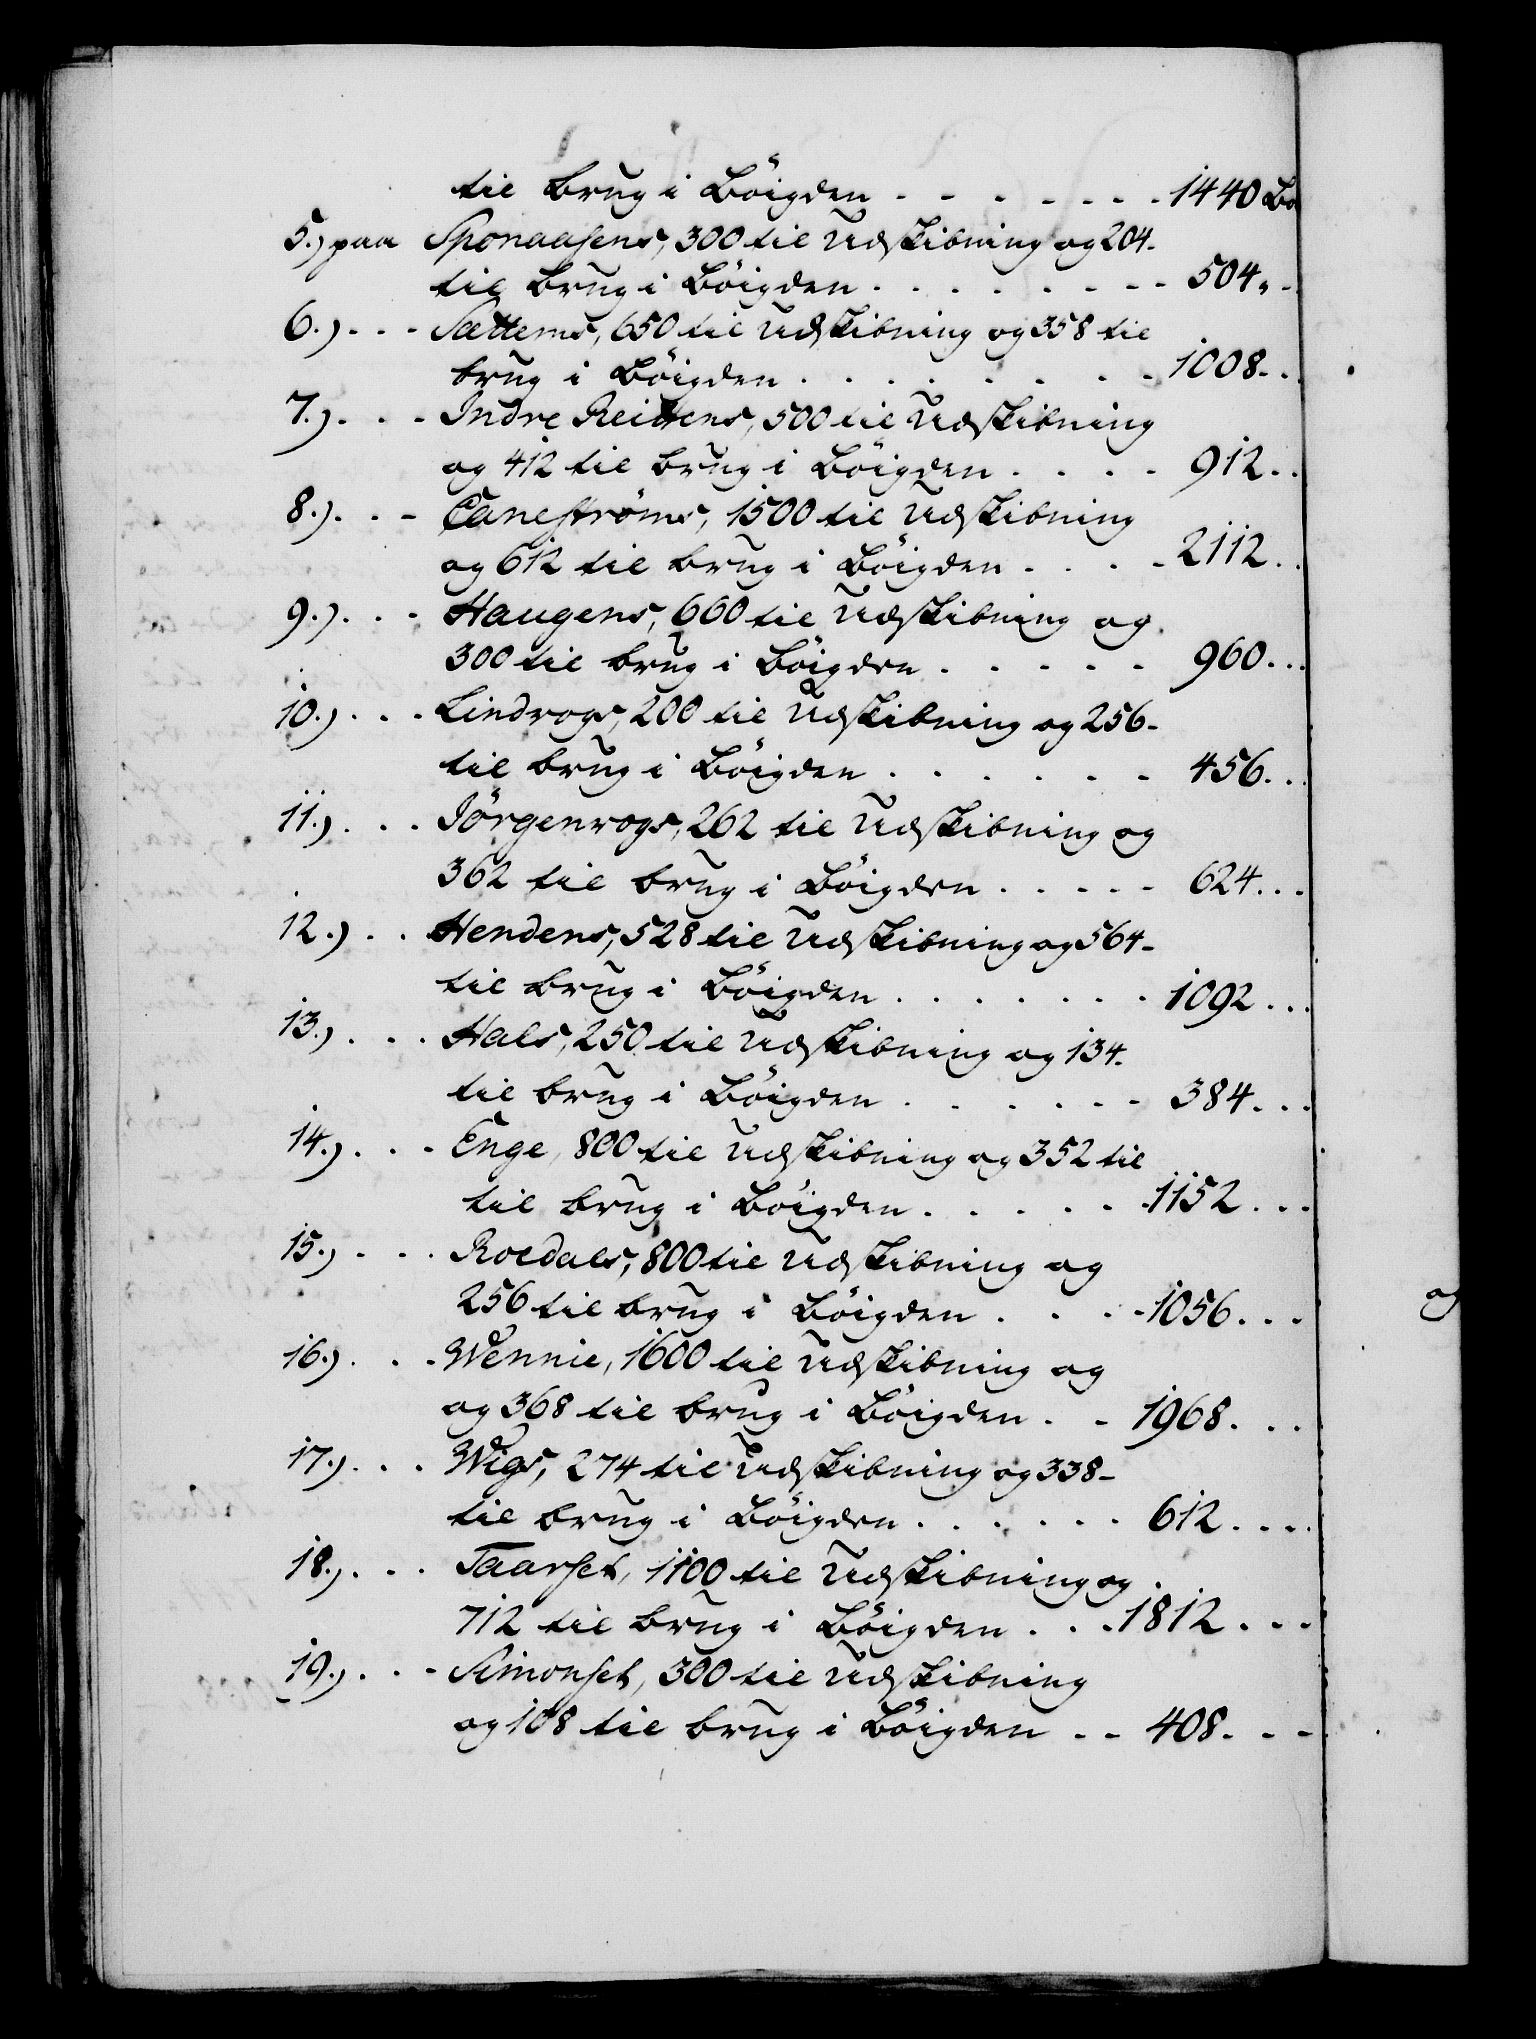 til brug i Böigden . . . . . . . 1440 Bo
5.) paa Sponaasens, 300 til Udskibning og 204-
til brug i Böigden . . . . . . . . 504 . .
6.) . . . Sættems, 650 til Udskibning og 358 til
brug i Böigden . . . . . . . . 1008 . . .
7.) . . . Indre Reittens, 500 til Udskibning
og 412 til brug i Böigden . . . . 912 . .
8.) . . . Canestrøms, 1500 til Udskibning
og 612 til brug i Böigden . . . . 2112 . .
9.) . . . Haugens, 660 til Udskibning og
300 til brug i Böigden . . . . . 960 . . .
10.) . . . Lindrogs, 200 til Udskibning og 256-
til brug i Böigden . . . . . . 456 . . .
11.) . . . Jörgenrogs, 262 til Udskibning og
362 til brug i Böigden . . . . . 624 . . .
12.) . . Hendens, 528 til Udskibning og 564-
til brug i Böigden . . . . . . . 1092 . . .
13.) . . . Hals, 250 til Udskibning og 134.
til brug i Böigden . . . . . . 384 . . .
14.) . . . Enge, 800 til Udskibning og 352 til
til brug i Böigden . . . . . . 1152 . . .
15.) . . . Roedals, 800 til Udskibning og
256 til brug i Böigden . . . . 1056 . . .
16.) . . . Wennie, 1600 til Udskibning og
og 368 til brug i Böigden . . 1968 . . .
17.) . . . Wigs, 274 til Udskibning og 338-
til brug i Böigden . . . . . . 612 . . . .
18.) . . . Taarset, 1100 til Udskibning og
712 til brug i Böigden . . . 1812 . . .
19.) . . . Simonset, 300 til Udskibning
og 108 til brug i Böigden . . 408 . . .
og